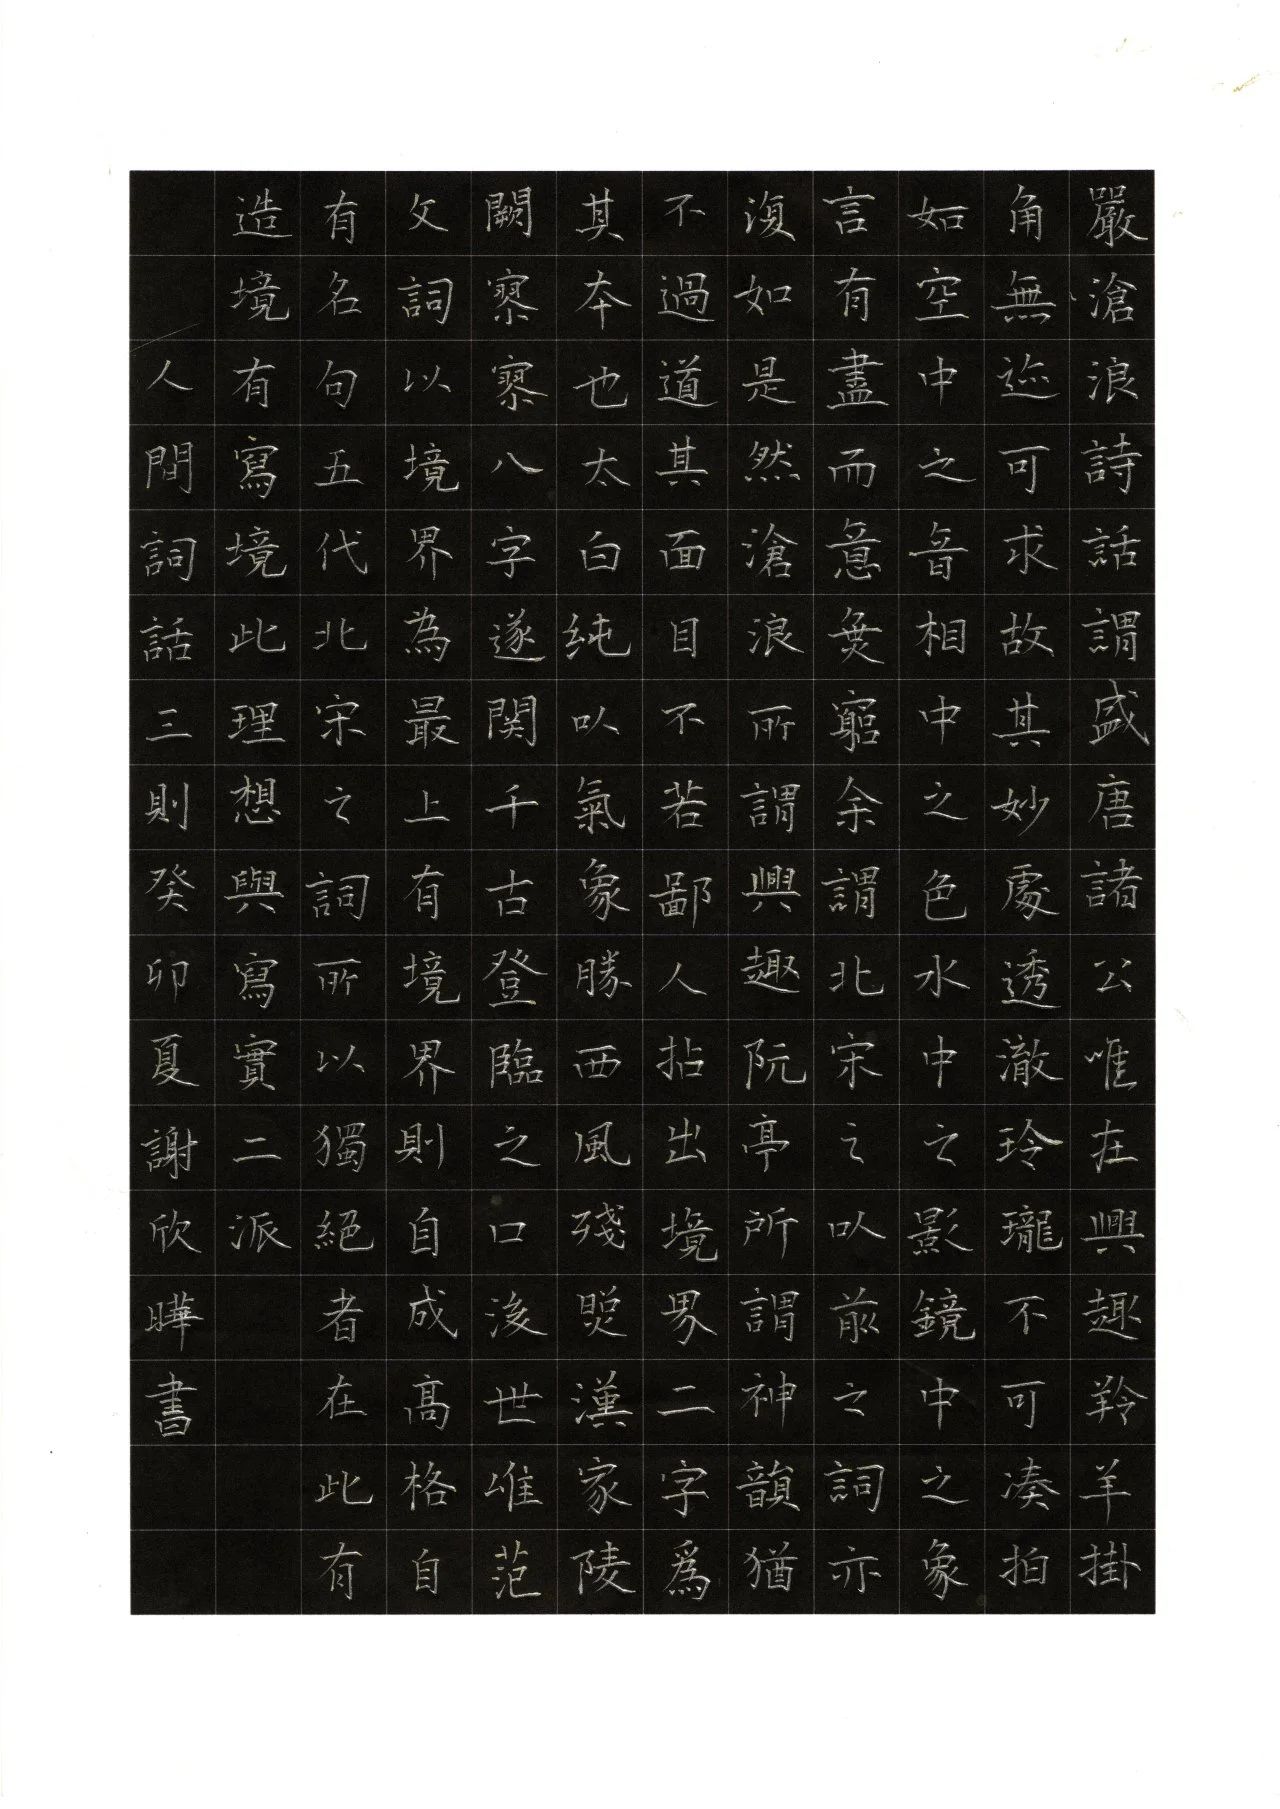 嚴滄浪詩話謂盛唐諸公唯在興趣羚羊掛
角無迹可求故其妙處透澈玲瓏不可凑拍
如空中之音相中之色水中之影鏡中之象
言有盡而意無窮余謂北宋之以前之詞亦
復如是然滄浪所謂興趣阮亭所謂神韻猶
不過道其面目不若鄙人拈出境界二字爲
其本也太白纯以氣象勝西風殘照漢家陵
闕寥寥八字遂関千古登臨之口後世唯范
文詞以境界為最上有境界則自成高格自
有名句五代北宋之詞所以獨絕者在此有
造境有寫境此理想與寫實二派
人間詞話三則癸卯夏謝欣曄書